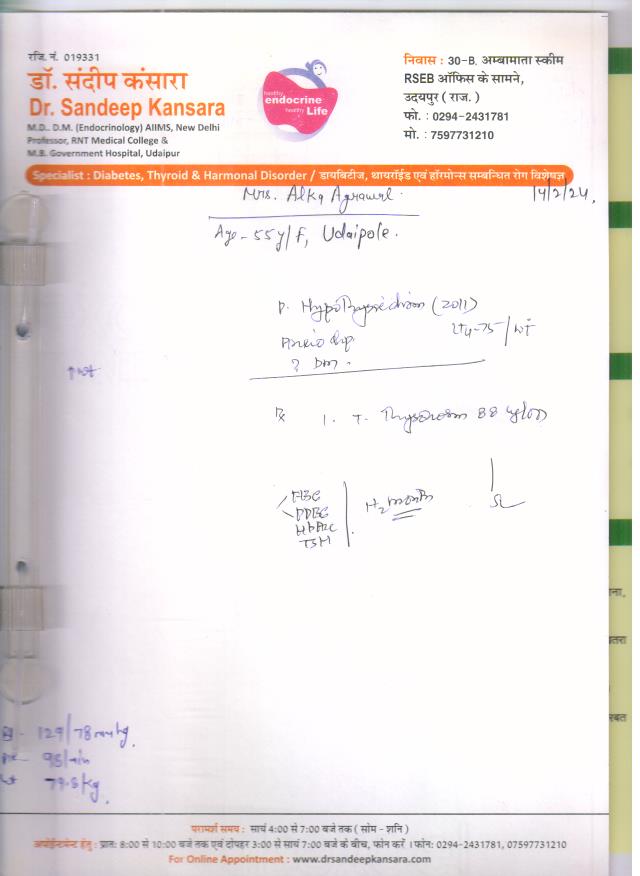 रजि. नं. 019331
डॉ. संदीप कंसारा
Dr. Sandeep Kansara
M.D., D.M. (Endocrinology) AIIMS, New Delhi
Professor, RNT Medical College &
M.B. Government Hospital, Udaipur
healthy
endocrine
healthy Life
निवास : 30-B, अम्बामाता स्कीम
RSEB ऑफिस के सामने,
उदयपुर ( राज. )
फो. : 0294-2431781
मो. : 7597731210
Specialist : Diabetes, Thyroid & Harmonal Disorder / डायबिटीज, थायरॉईड एवं हॉरमोन्स सम्बन्धित रोग विशेषज्ञ
Mrs. Alka Agrawal.
14/2/24,
Age - 55y/F, Udaipole.
(2011)
? DM.
↑wt
Rx 1. T. 88
FBG
PPBG
HbA1c
TSH
2 month
129/78 mmhg.
98/min
79.5/kg.
परामर्श समय : सायं 4:00 से 7:00 बजे तक ( सोम - शनि )
अपोईन्टमेन्ट हेतु : प्रातः 8:00 से 10:00 बजे तक एवं दोपहर 3:00 से सायं 7:00 बजे के बीच, फोन करें । फोन: 0294-2431781, 07597731210
For Online Appointment : www.drsandeepkansara.com